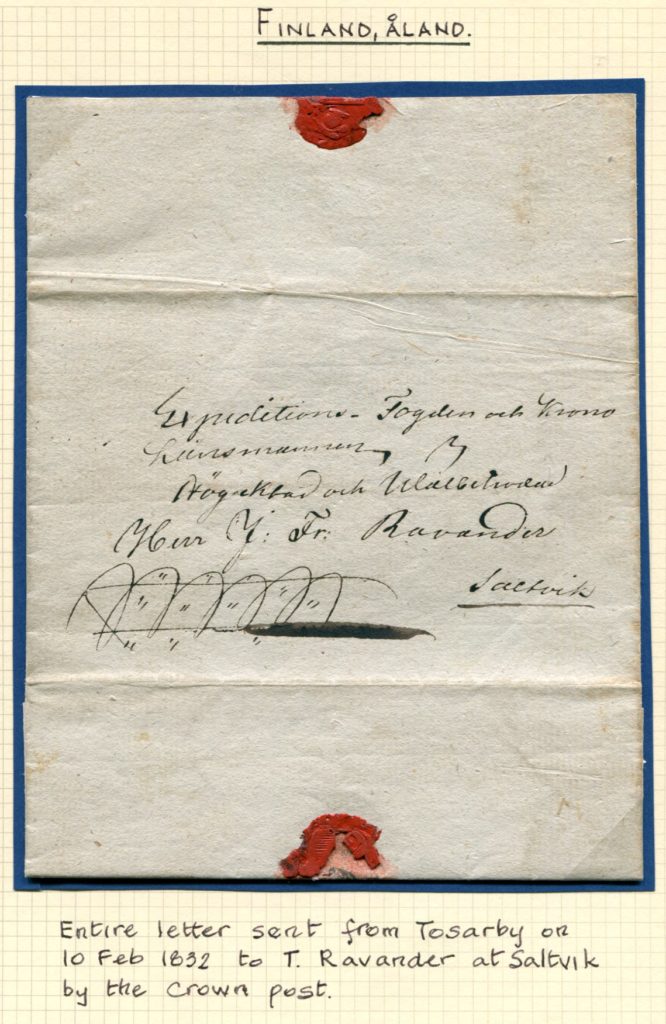 FINLAND, ÅLAND.
Expeditions-Fogden och Krono
Länsmannen
Högaktad och Wälbetrodd
Herr J: Fr: Ravander
Saltvik
Entire letter sent from Tosarby on
10 Feb 1832 to T. Ravander at Saltvik
by the Crown post.